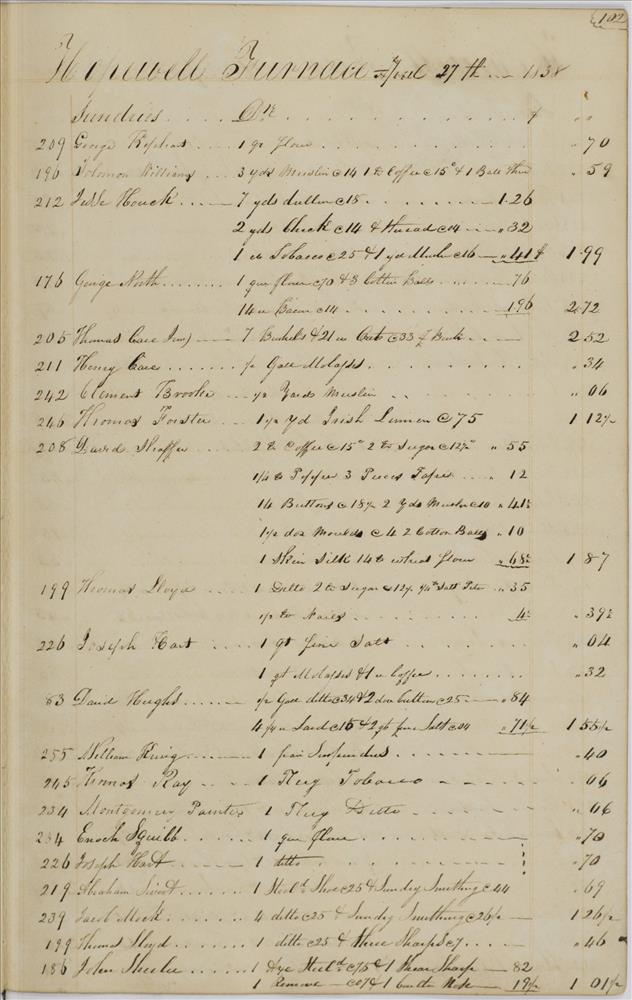 102
Hopewell Furnace April 27th 1838
Sundries Dr
209 George 1 qr flour 70
190 Solomon Williams 3 yds Muslin c14 1 lb Coffee c15 & 1 Ball 59
212 Jesse Houck 7 yds c18 1.26
2 yds Check c14 & thread c04 " 32
1 lb Tobacco c25 & 1 yd c16 " 41 1.99
176 George North 1 qur flour c70 & 3 Cotton Balls 76
14 lb Bacon c14 196 2.72
205 Thomas Care Jun 7 Bushels & 21 lb Oats c33 2 52
211 Henry Care 1/2 Gall Molasses " 34
242 Clement Brooke 1/2 Yards Muslin " 06
246 Thomas Forster 1 1/2 Yd Irish Linnen @ 75 1 12 1/2
208 David Shaffer 2 lb Coffee c15 2 lb Sugar c12 1/2 " 55
1/4 lb Pepper 3 Pieces Tape " 12
14 Buttons c 18 2 Yds Muslin c10 " 41
1 1/2 doz Moulds c4 2 Cotton Balls " 10
1 Skein Silk 14 lb wheat flour " 68 1 87
199 Thomas Lloyd 1 Ditto 2 lb Sugar c12 1/2 Salt Petre " 35
1/2 lb Nails 4 " 39
226 Joseph Hart 1 qt fine Salt " 04
1 qt Molasses & 1 lb Coffee " 32
83 David Hughs 1/2 Gall ditto c34 & 2 doz buttons c25 " 84
4 3/4 lb Lard c15 & 2 qts fine Salt c04 " 71 1/2 1 55 1/2
255 William King 1 pair Suspenders " 40
245 Thomas Ray 1 Plug Tobacco " 06
234 Montgomery Painter 1 Plug Ditto " 06
234 Enoch Squibb 1 qur flour " 70
226 Joseph Hart 1 ditto " 70
219 Abraham 1 Steel'd Shoe c25 & Sundry Smithing c 44 " 69
239 Jacob Mock 4 ditto c25 & Sundry Smithing c26 1/2 1 26 1/2
199 Thomas Lloyd 1 ditto c25 & three Sharps c7 " 46
186 John Sheeler 1 Axe Steel'd c75 & 1 Shear Sharp 82
1 Remove c07 & 1 19 1/2 1 01 1/2